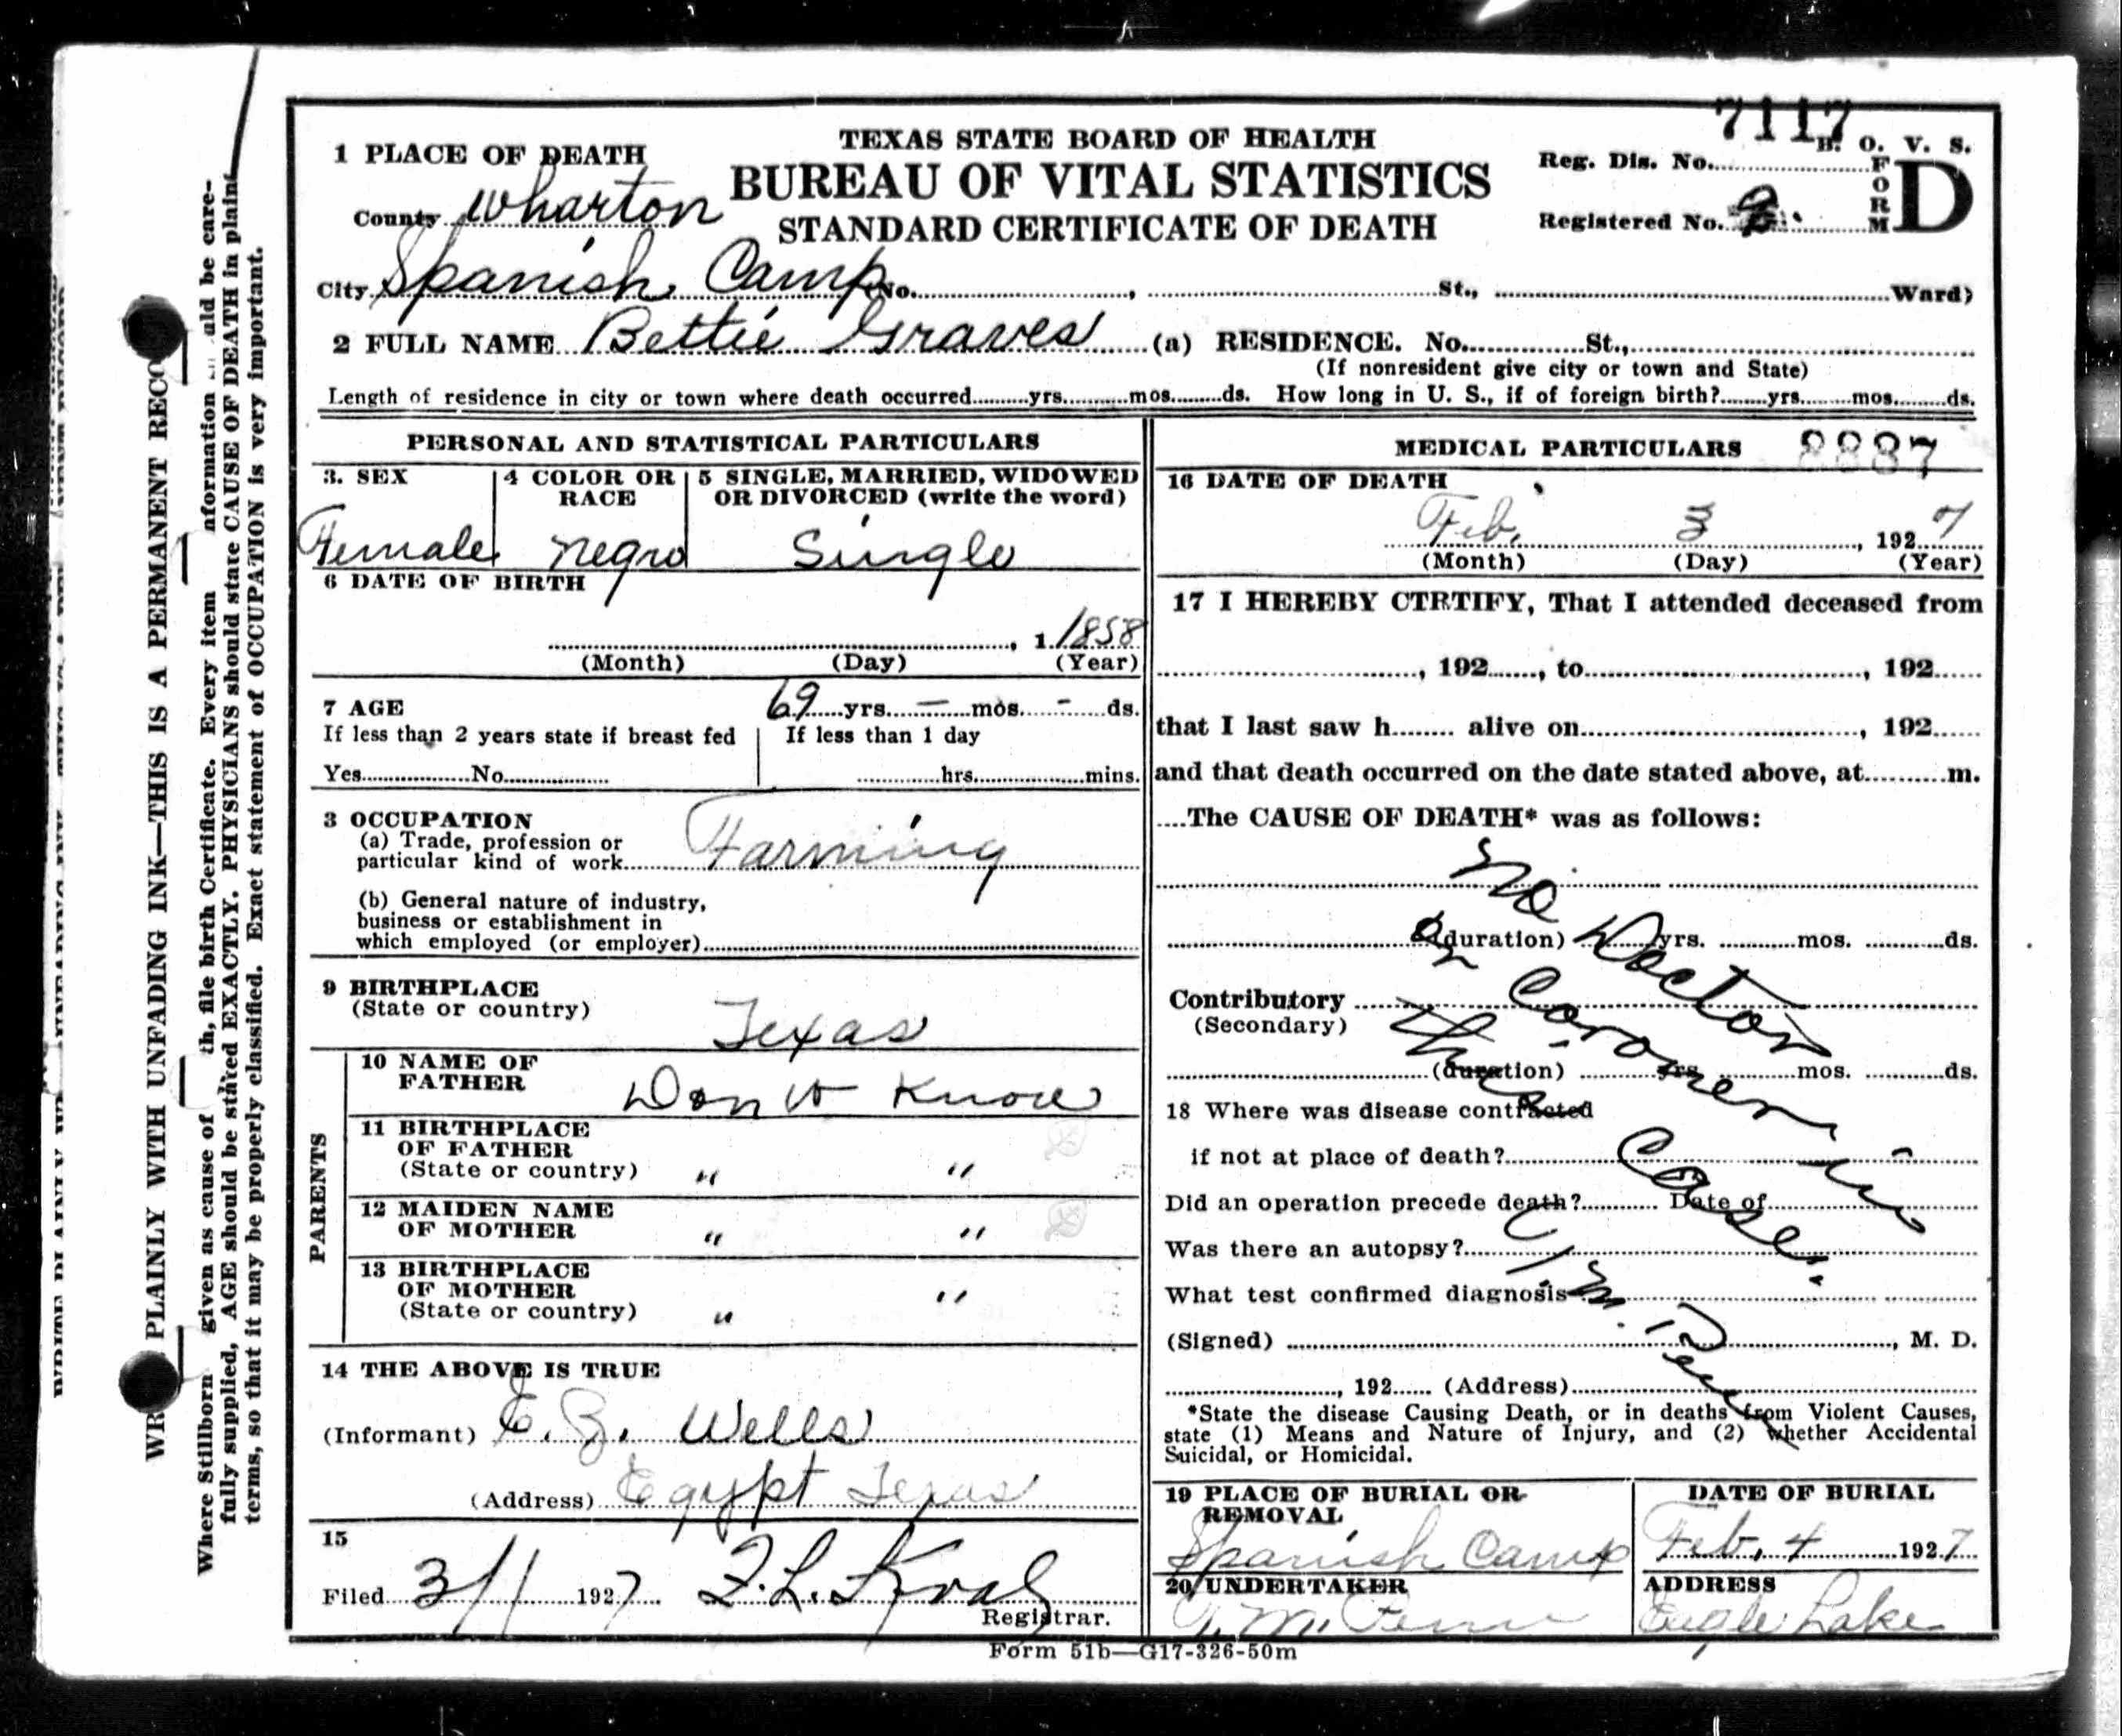 7117
TEXAS STATE BOARD OF HEALTH
BUREAU OF VITAL STATISTICS
STANDARD CERTIFICATE OF DEATH
B. O. V. S.
FORM D
Reg. Dis. No.
Registered No.
1 PLACE OF DEATH
County Wharton
City Spanish Camp No. , St., Ward)
2 FULL NAME Bettie Graves (a) RESIDENCE. No. St.,
(If nonresident give city or town and State)
Length of residence in city or town where death occurred yrs. mos. ds. How long in U. S., if of foreign birth? yrs. mos. ds.
PERSONAL AND STATISTICAL PARTICULARS
3. SEX
Female
4 COLOR OR RACE
Negro
5 SINGLE, MARRIED, WIDOWED
OR DIVORCED (write the word)
Single
6 DATE OF BIRTH
, 1 1858
(Month) (Day) (Year)
7 AGE 69 yrs. — mos. - ds.
If less than 2 years state if breast fed
Yes No
If less than 1 day
hrs. mins.
3 OCCUPATION
(a) Trade, profession or
particular kind of work Farming
(b) General nature of industry,
business or establishment in
which employed (or employer)
9 BIRTHPLACE
(State or country) Texas
PARENTS
10 NAME OF
FATHER Don't Know
11 BIRTHPLACE
OF FATHER
(State or country) " "
12 MAIDEN NAME
OF MOTHER " "
13 BIRTHPLACE
OF MOTHER
(State or country) " "
14 THE ABOVE IS TRUE
(Informant) E. Z. Wells
(Address) Egypt Texas
15
Filed 3/1 1927 F. L. Kral
Registrar.
MEDICAL PARTICULARS 8887
16 DATE OF DEATH
Feb. 3, 1927
(Month) (Day) (Year)
17 I HEREBY CTRTIFY, That I attended deceased from
, 192 , to , 192
that I last saw h alive on , 192
and that death occurred on the date stated above, at m.
The CAUSE OF DEATH* was as follows:
No Doctor
or Coroner in
this Case.
(duration) yrs. mos. ds.
Contributory
(Secondary)
(duration) yrs. mos. ds.
18 Where was disease contracted
if not at place of death?
Did an operation precede death? Date of
Was there an autopsy?
What test confirmed diagnosis
(Signed) , M. D.
, 192 (Address)
*State the disease Causing Death, or in deaths from Violent Causes,
state (1) Means and Nature of Injury, and (2) whether Accidental
Suicidal, or Homicidal.
19 PLACE OF BURIAL OR
REMOVAL
Spanish Camp
DATE OF BURIAL
Feb. 4 1927
20 UNDERTAKER
ADDRESS
Eagle Lake
Form 51b—G17-326-50m
WR PLAINLY WITH UNFADING INK—THIS IS A PERMANENT RECO
Where Stillborn given as cause of th, file birth Certificate. Every item nformation uld be care-
fully supplied, AGE should be stated EXACTLY. PHYSICIANS should state CAUSE OF DEATH in plain
terms, so that it may be properly classified. Exact statement of OCCUPATION is very important.